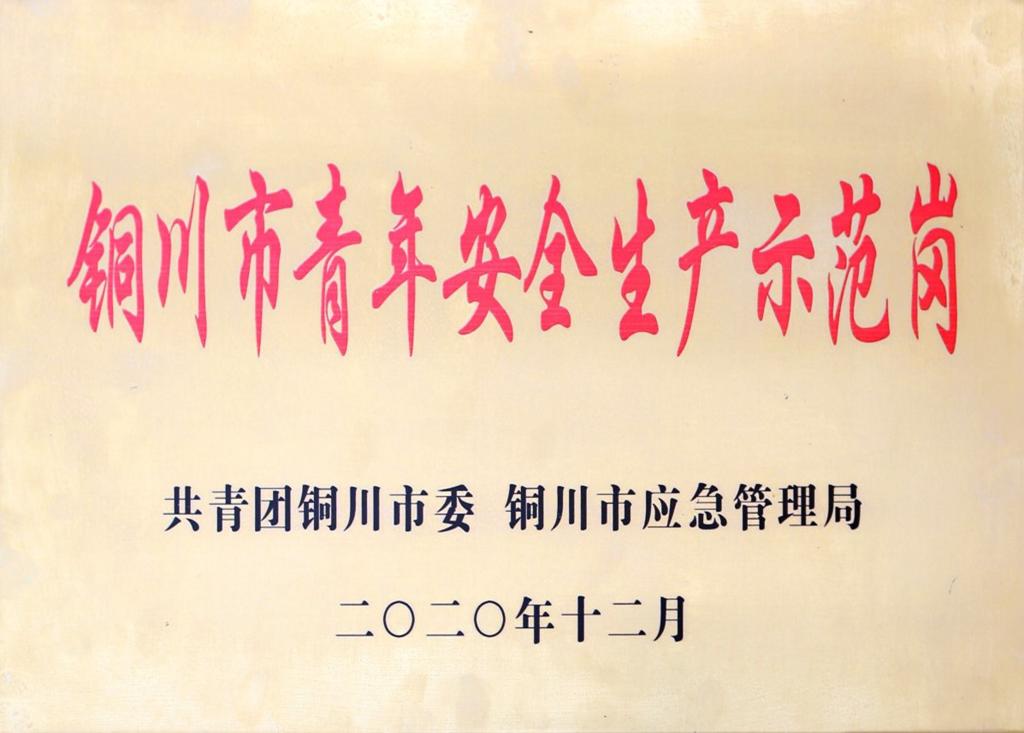 铜川市青年安全生产示范岗
共青团铜川市委 铜川市应急管理局
二〇二〇年十二月